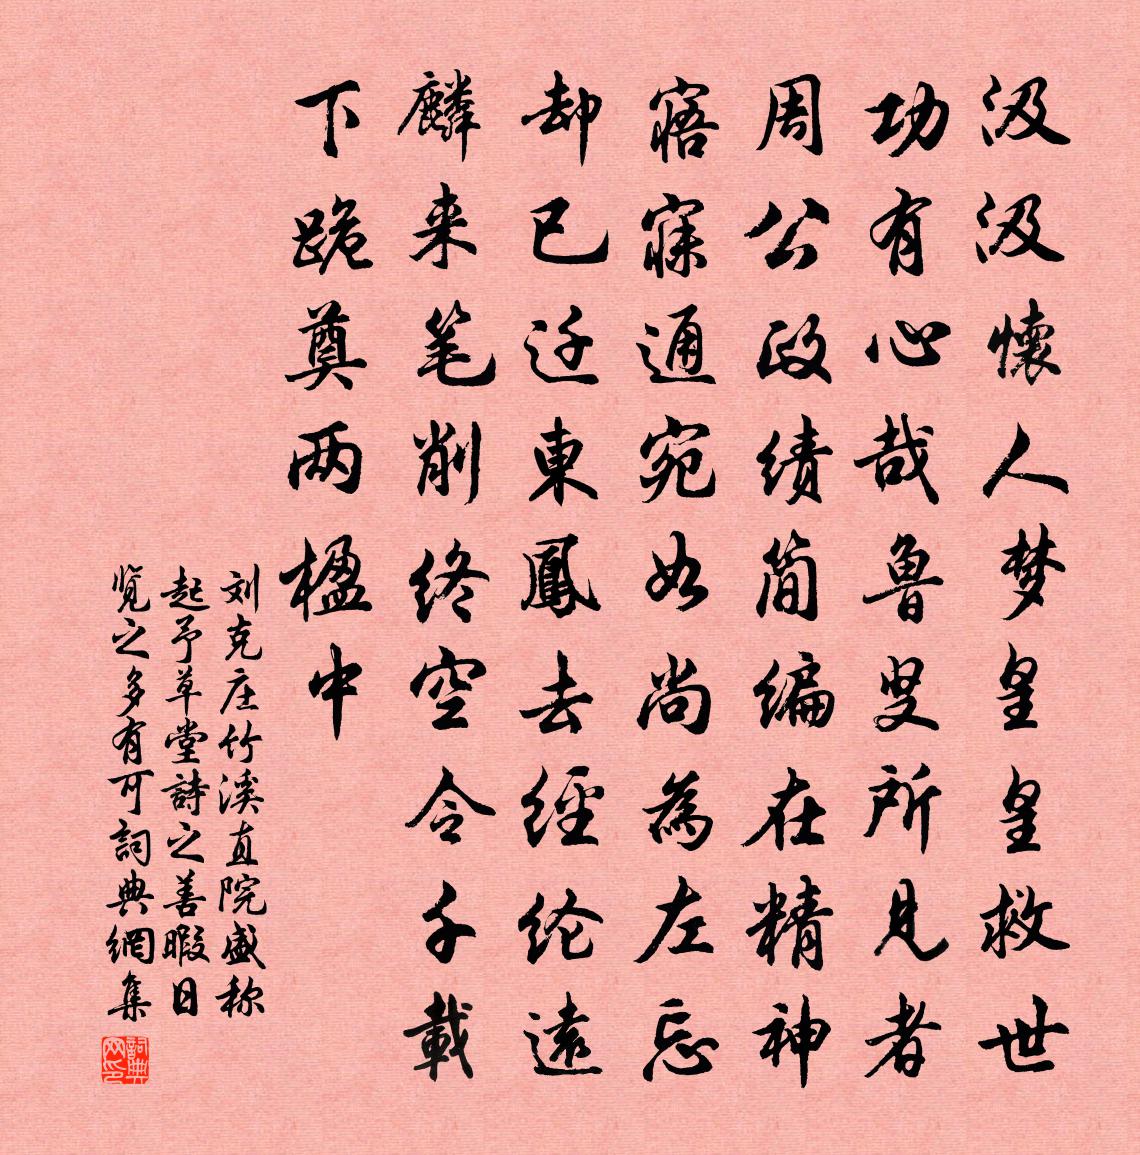 汲汲懷人梦皇皇救世
功有心哉鲁叟所見者
周公政績简编在精神
寤寐通宛如尚為左忘
却已迁東鳳去經纶遠
麟来笔削终空令千載
下跪奠两楹中
刘克庄竹溪直院盛称
起予草堂詩之善暇日
览之多有可詞典網集
詞典网印